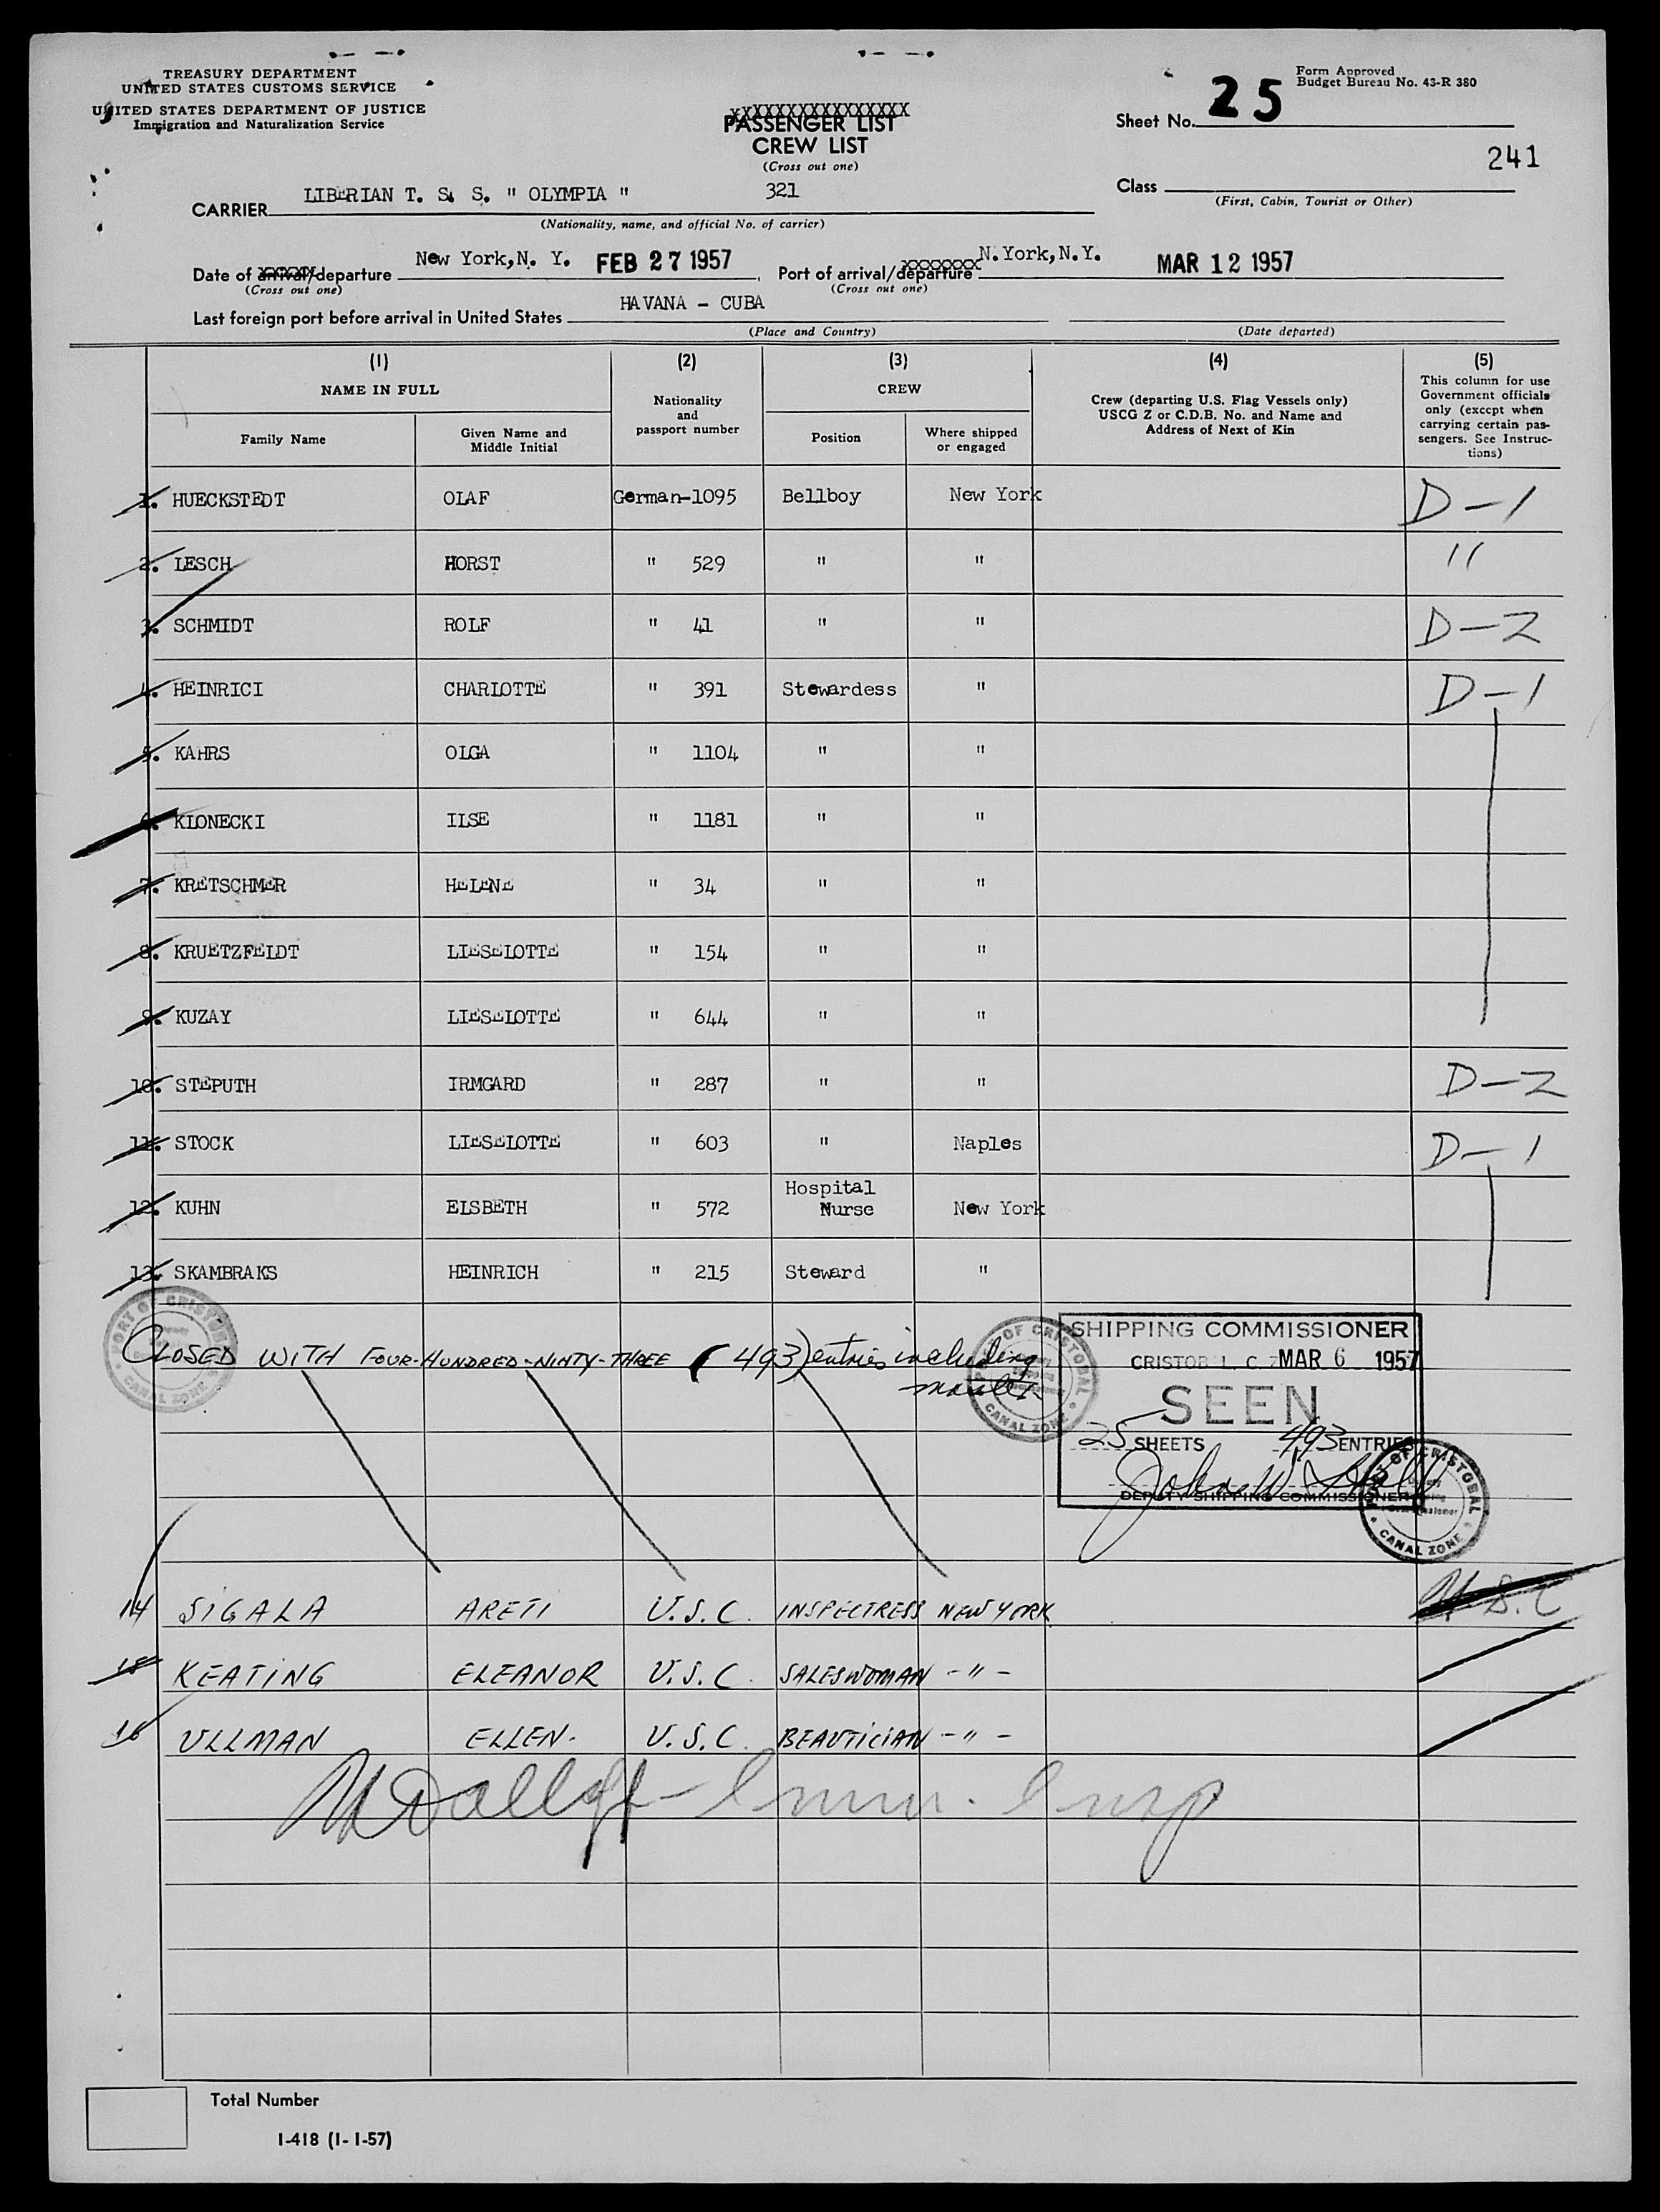 TREASURY DEPARTMENT
UNITED STATES CUSTOMS SERVICE
UNITED STATES DEPARTMENT OF JUSTICE
Immigration and Naturalization Service
XXXXXXXXXXXXXXXX
PASSENGER LIST
CREW LIST
(Cross out one)
Form Approved
Budget Bureau No. 43-R 380
Sheet No. 25
241
Class
(First, Cabin, Tourist or Other)
CARRIER LIBERIAN T. S. S. " OLYMPIA " 321
(Nationality, name, and official No. of carrier)
Date of arrival/departure New York, N. Y. FEB 27 1957, Port of arrival/departure N. York, N.Y. MAR 12 1957
(Cross out one) (Cross out one)
Last foreign port before arrival in United States HAVANA - CUBA
(Place and Country) (Date departed)
(1) (2) (3) (4) (5)
NAME IN FULL
Family Name
Given Name and Middle Initial
Nationality and passport number
CREW
Position
Where shipped or engaged
Crew (departing U.S. Flag Vessels only)
USCG Z or C.D.B. No. and Name and
Address of Next of Kin
This column for use
Government officials
only (except when
carrying certain pas-
sengers. See Instruc-
tions)
1. HUECKSTEDT OLAF German-1095 Bellboy New York D-1
2. LESCH HORST " 529 " " "
3. SCHMIDT ROLF " 41 " " D-2
4. HEINRICI CHARLOTTE " 391 Stewardess " D-1
5. KAHRS OLGA " 1104 " "
6. KLONECKI ILSE " 1181 " "
7. KRETSCHMER HELENE " 34 " "
8. KRUETZFELDT LIESELOTTE " 154 " "
9. KUZAY LIESELOTTE " 644 " "
10. STEPUTH IRMGARD " 287 " " D-2
11. STOCK LIESELOTTE " 603 " Naples D-1
12. KUHN ELSBETH " 572 Hospital Nurse New York
13. SKAMBRAKS HEINRICH " 215 Steward "
PORT OF CRISTOBAL
CANAL ZONE
CLOSED WITH FOUR-HUNDRED-NINTY-THREE (493) entries including
master
PORT OF CRISTOBAL
CANAL ZONE
SHIPPING COMMISSIONER
CRISTOBAL, C. Z. MAR 6 1957
SEEN
25 SHEETS 493 ENTRIES
DEPUTY SHIPPING COMMISSIONER
PORT OF CRISTOBAL
CANAL ZONE
14 SIGALA ARETI U.S.C. INSPECTRESS NEW YORK U.S.C
15 KEATING ELEANOR U.S.C. SALESWOMAN -"-
16 ULLMAN ELLEN. U.S.C. BEAUTICIAN -"-
Imm. Insp
Total Number
I-418 (1-1-57)